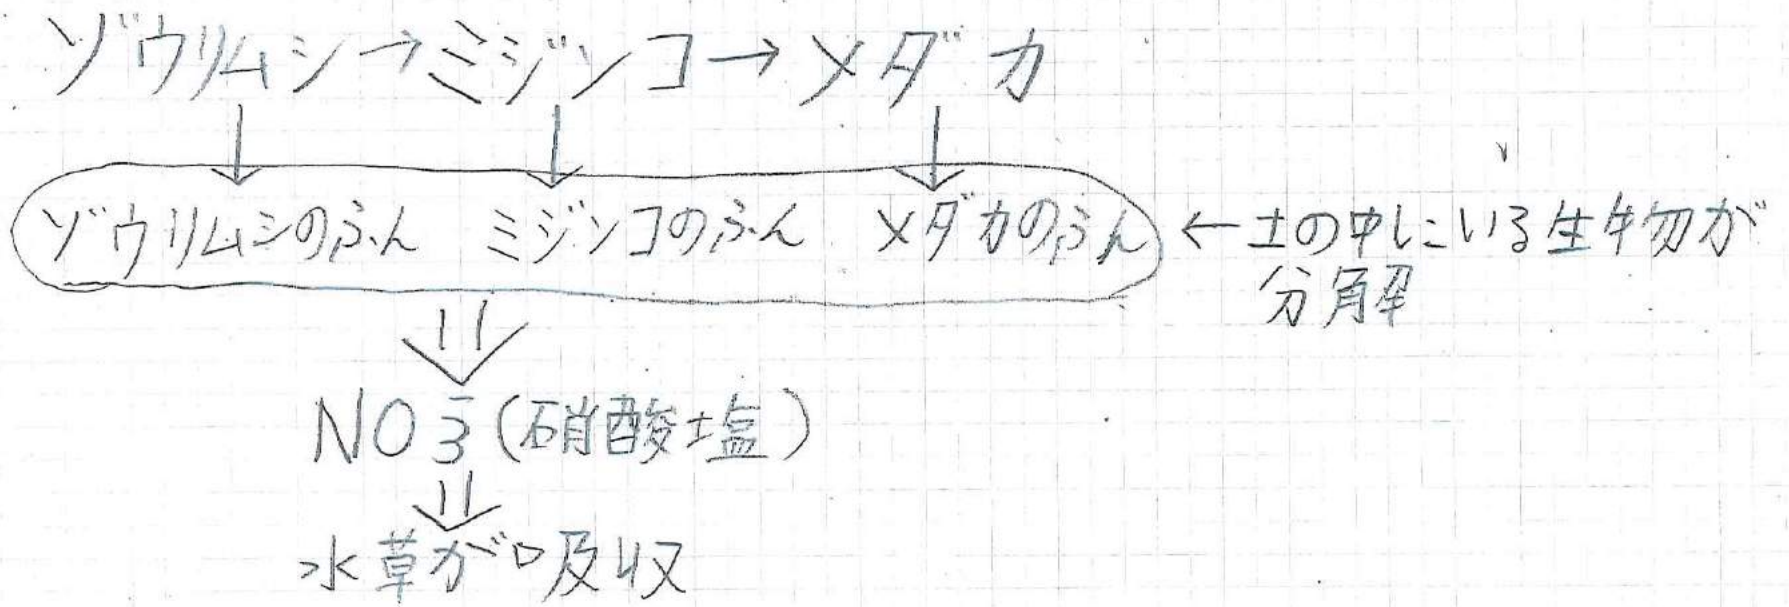 ゾウリムシ→ミジンコ→メダカ
↓ ↓ ↓
ゾウリムシのふん ミジンコのふん メダカのふん ←土の中にいる生物が
分解
⇓
NO₃⁻(硝酸塩)
⇓
水草が吸収